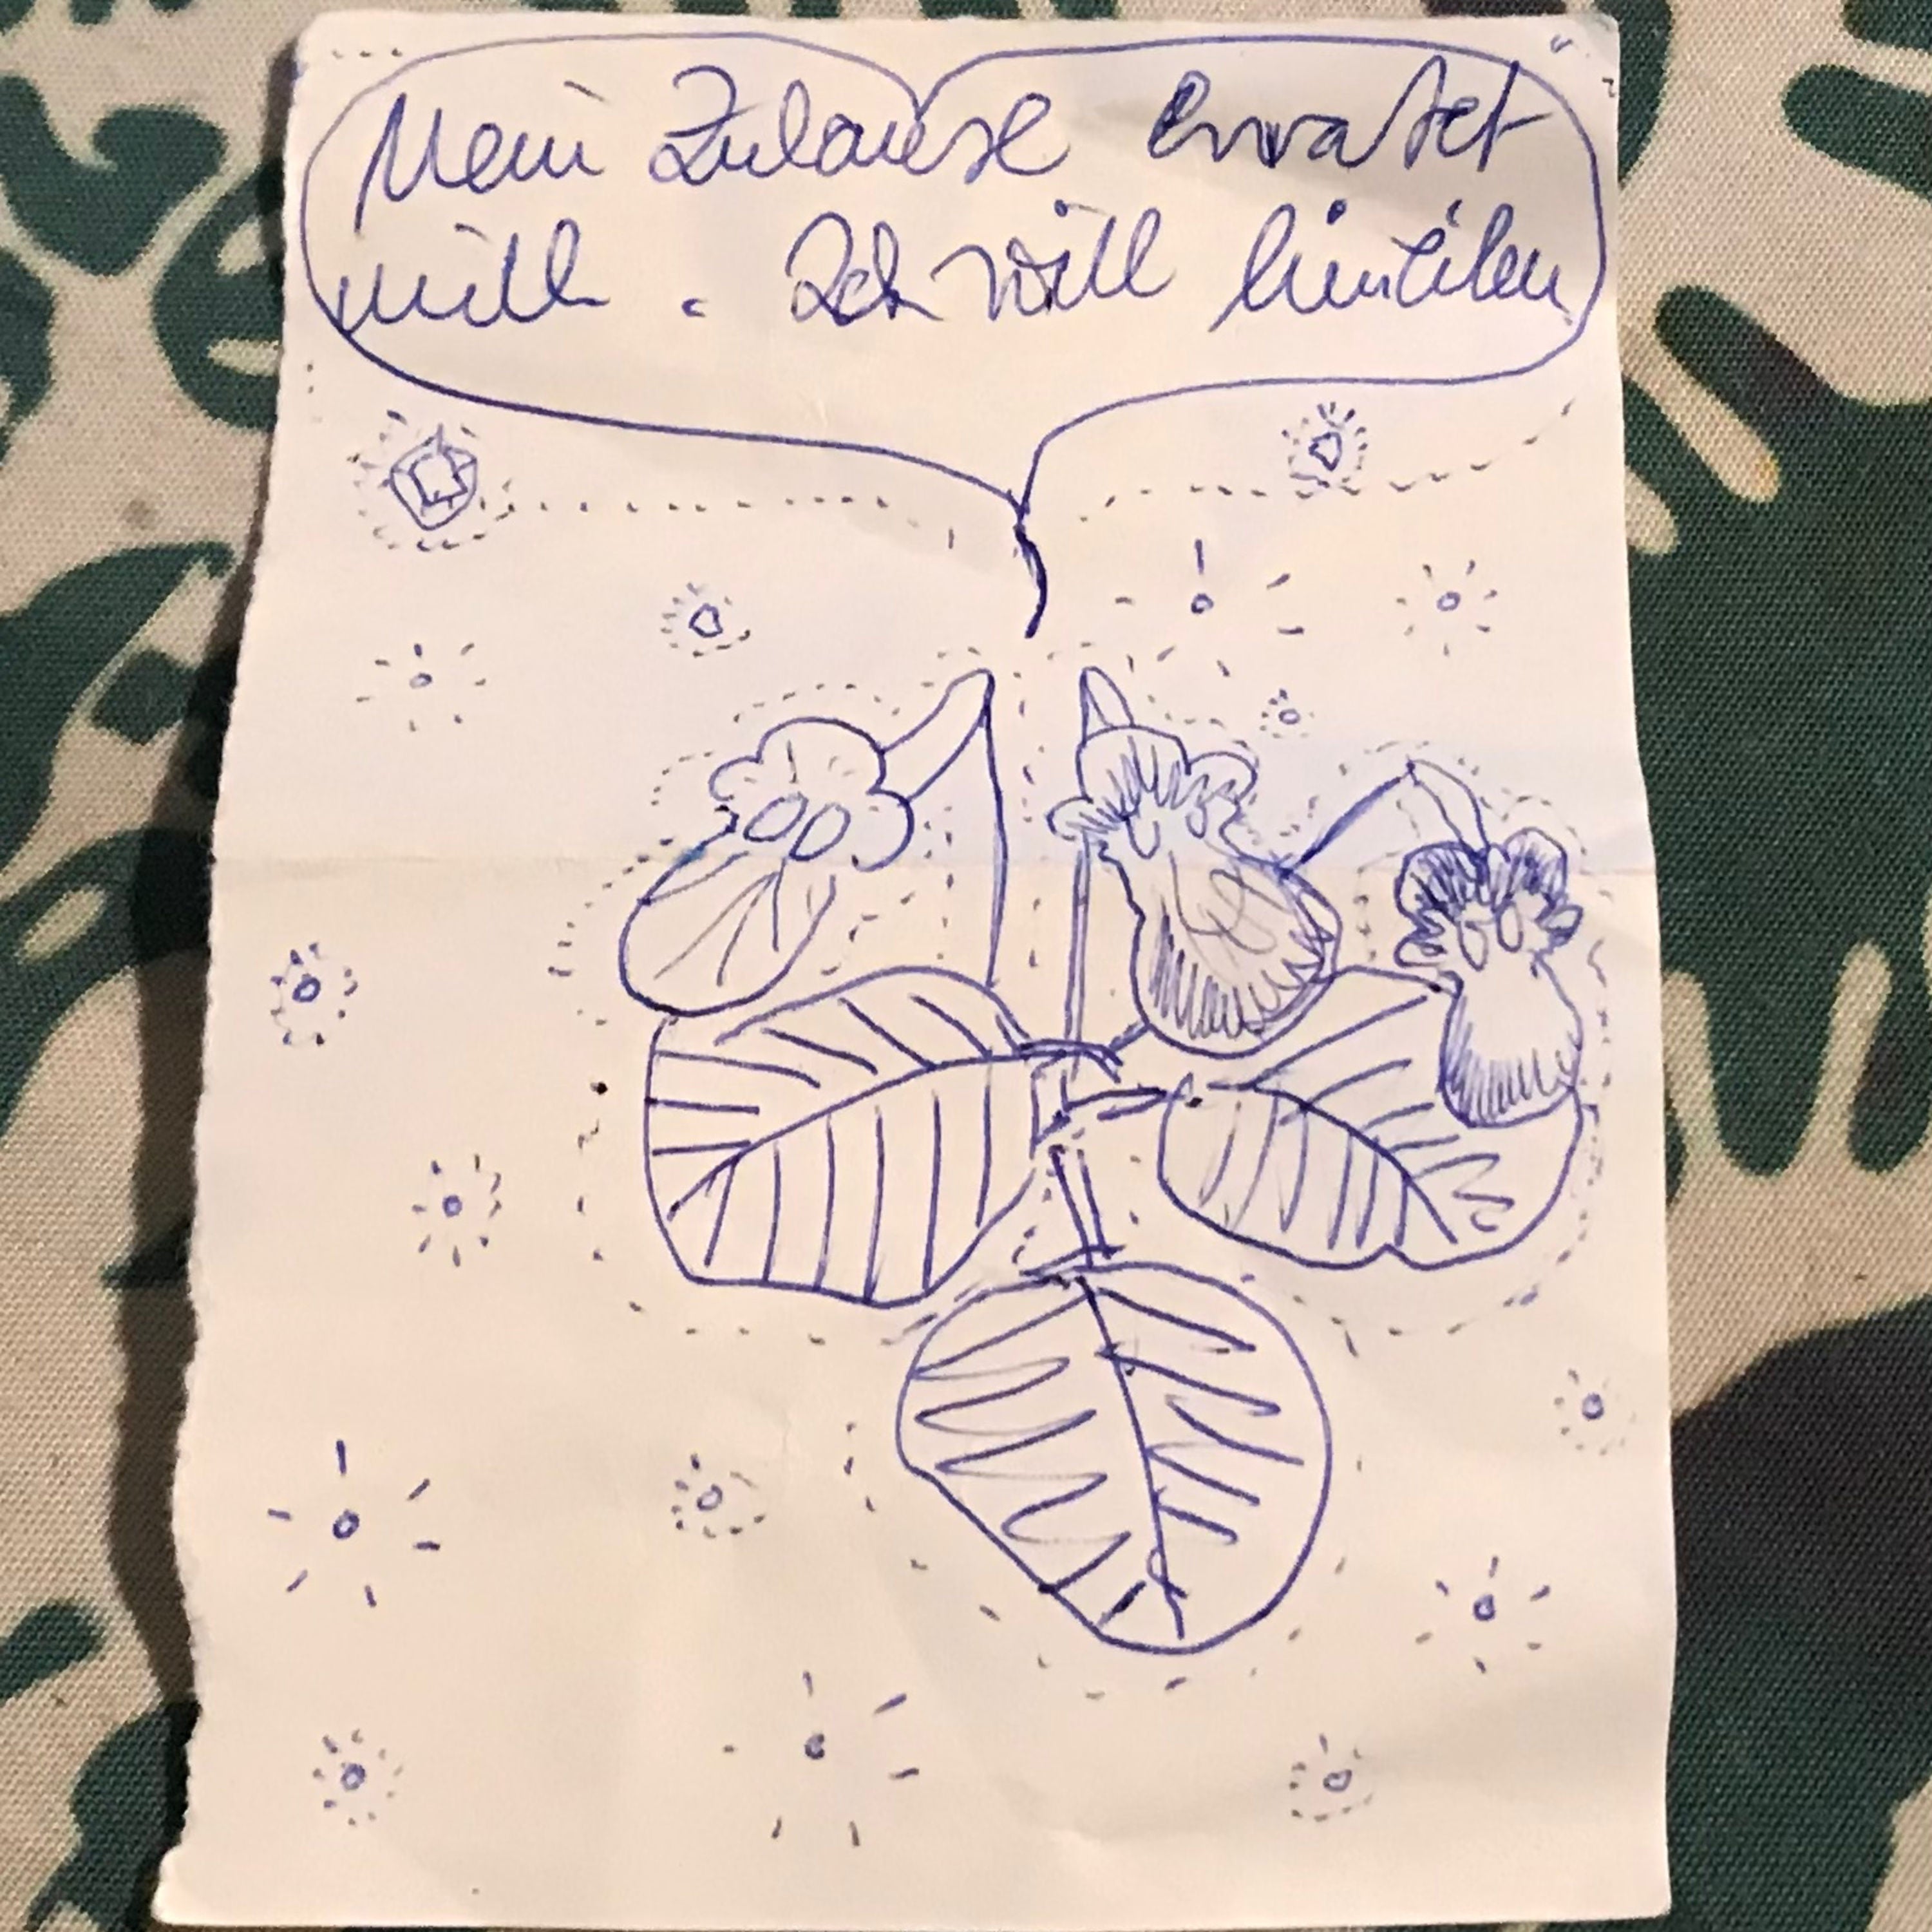 Mein Zuhause erwartet
mich. Ich will hineilen